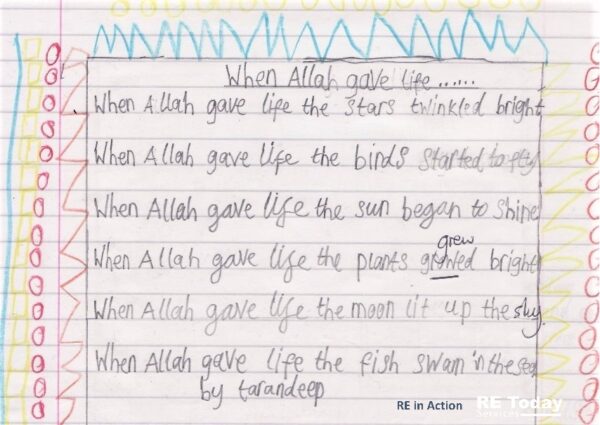 When Allah gave life ......
When Allah gave life the stars twinkled bright
When Allah gave life the birds started to fly
When Allah gave life the sun began to shine
grew
When Allah gave life the plants growed bright
When Allah gave life the moon lit up the sky.
When Allah gave life the fish swam in the sea
by tarandeep
RE in Action
RE Today
Services